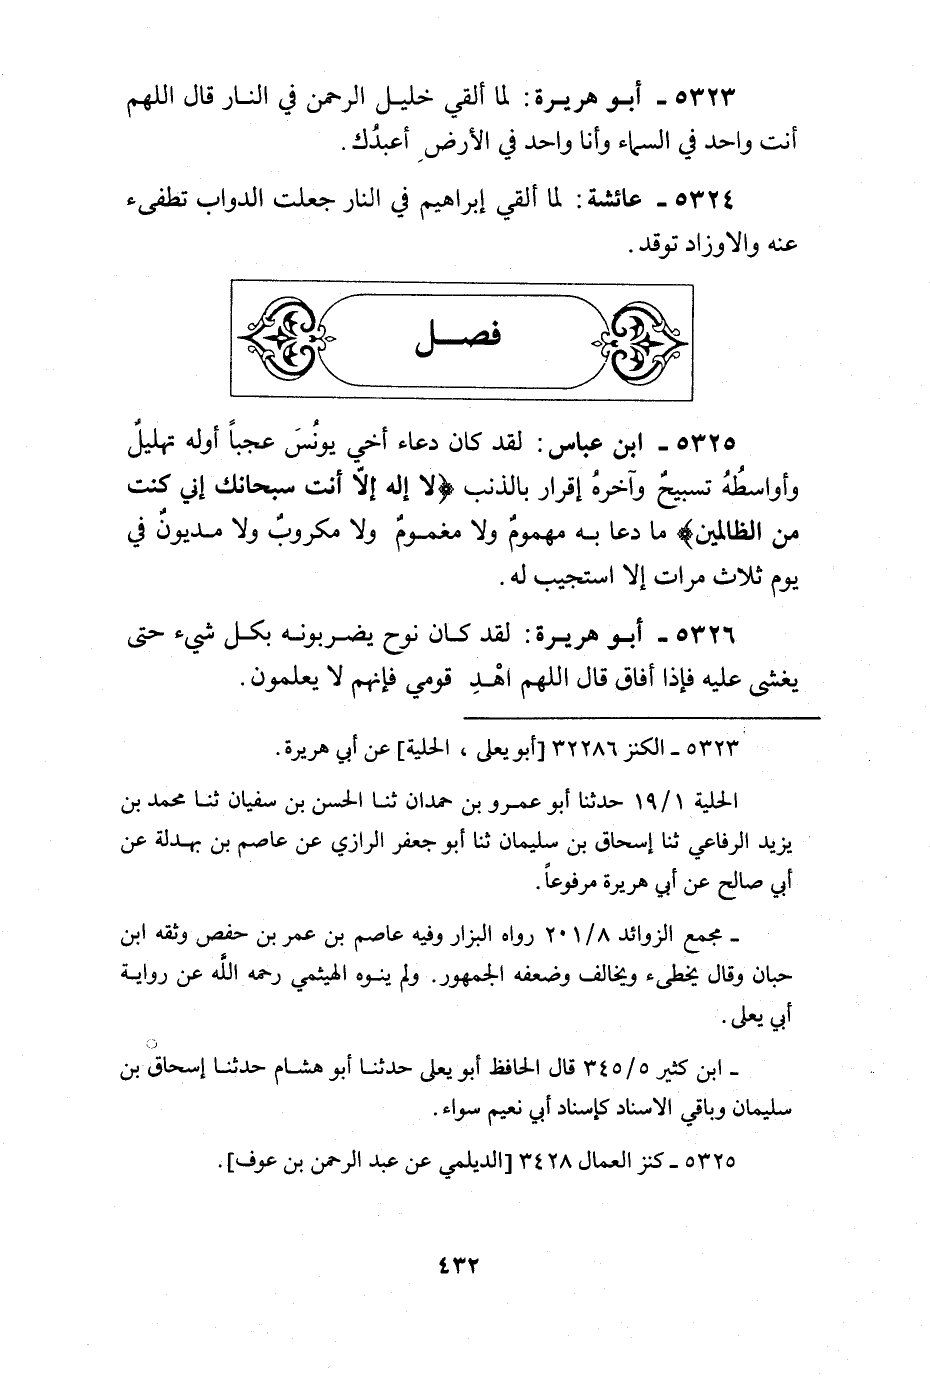 ٥٣٢٣ ـ أبـو هريـرة: لما ألقي خليـل الرحمن في النـار قال اللهم
أنت واحد في السماء وأنا واحد في الأرضِ أعبدُك.
٥٣٢٤ ـ عائشة: لما ألقي إبراهيم في النار جعلت الدواب تطفىء
عنه والاوزاد توقد.
فصـل
٥٣٢٥ ـ ابن عباس: لقد كان دعاء أخي يونُسَ عجباً أوله تهليلٌ
وأواسطُهُ تسبيحٌ وآخرهُ إقرار بالذنب ﴿لا إله إلاّ أنت سبحانك إني كنت
من الظالمين﴾ ما دعا بـه مهمومٌ ولا مغمـومٌ ولا مكروبٌ ولا مـديونٌ في
يوم ثلاث مرات إلا استجيب له.
٥٣٢٦ ـ أبـو هريـرة: لقد كـان نوح يضـربونـه بكـل شيء حتى
يغشى عليه فإذا أفاق قال اللهم اهْـدِ قومي فإنهم لا يعلمون.
٥٣٢٣ ـ الكنز ٣٢٢٨٦ [أبو يعلى ، الحلية] عن أبي هريرة.
الحلية ١٩/١ حدثنا أبو عمـرو بن حمدان ثنـا الحسن بن سفيان ثنـا محمد بن
يزيد الرفاعي ثنا إسحاق بن سليمان ثنا أبو جعفر الرازي عن عاصم بن بهـدلة عن
أبي صالح عن أبي هريرة مرفوعاً.
ـ مجمع الزوائد ٢٠١/٨ رواه البزار وفيه عاصم بن عمر بن حفص وثقه ابن
حبان وقال يخطىء ويخالف وضعفه الجمهور. ولم ينـوه الهيثمي رحمه اللَّه عن روايـة
أبي يعلى.
ـ ابن كثير ٣٤٥/٥ قال الحافظ أبو يعلى حدثنـا أبو هشـام حدثنـا إسحاق بن
سليمان وباقي الاسناد كإسناد أبي نعيم سواء.
٥٣٢٥ ـ كنز العمال ٣٤٢٨ [الديلمي عن عبد الرحمن بن عوف].
٤٣٢